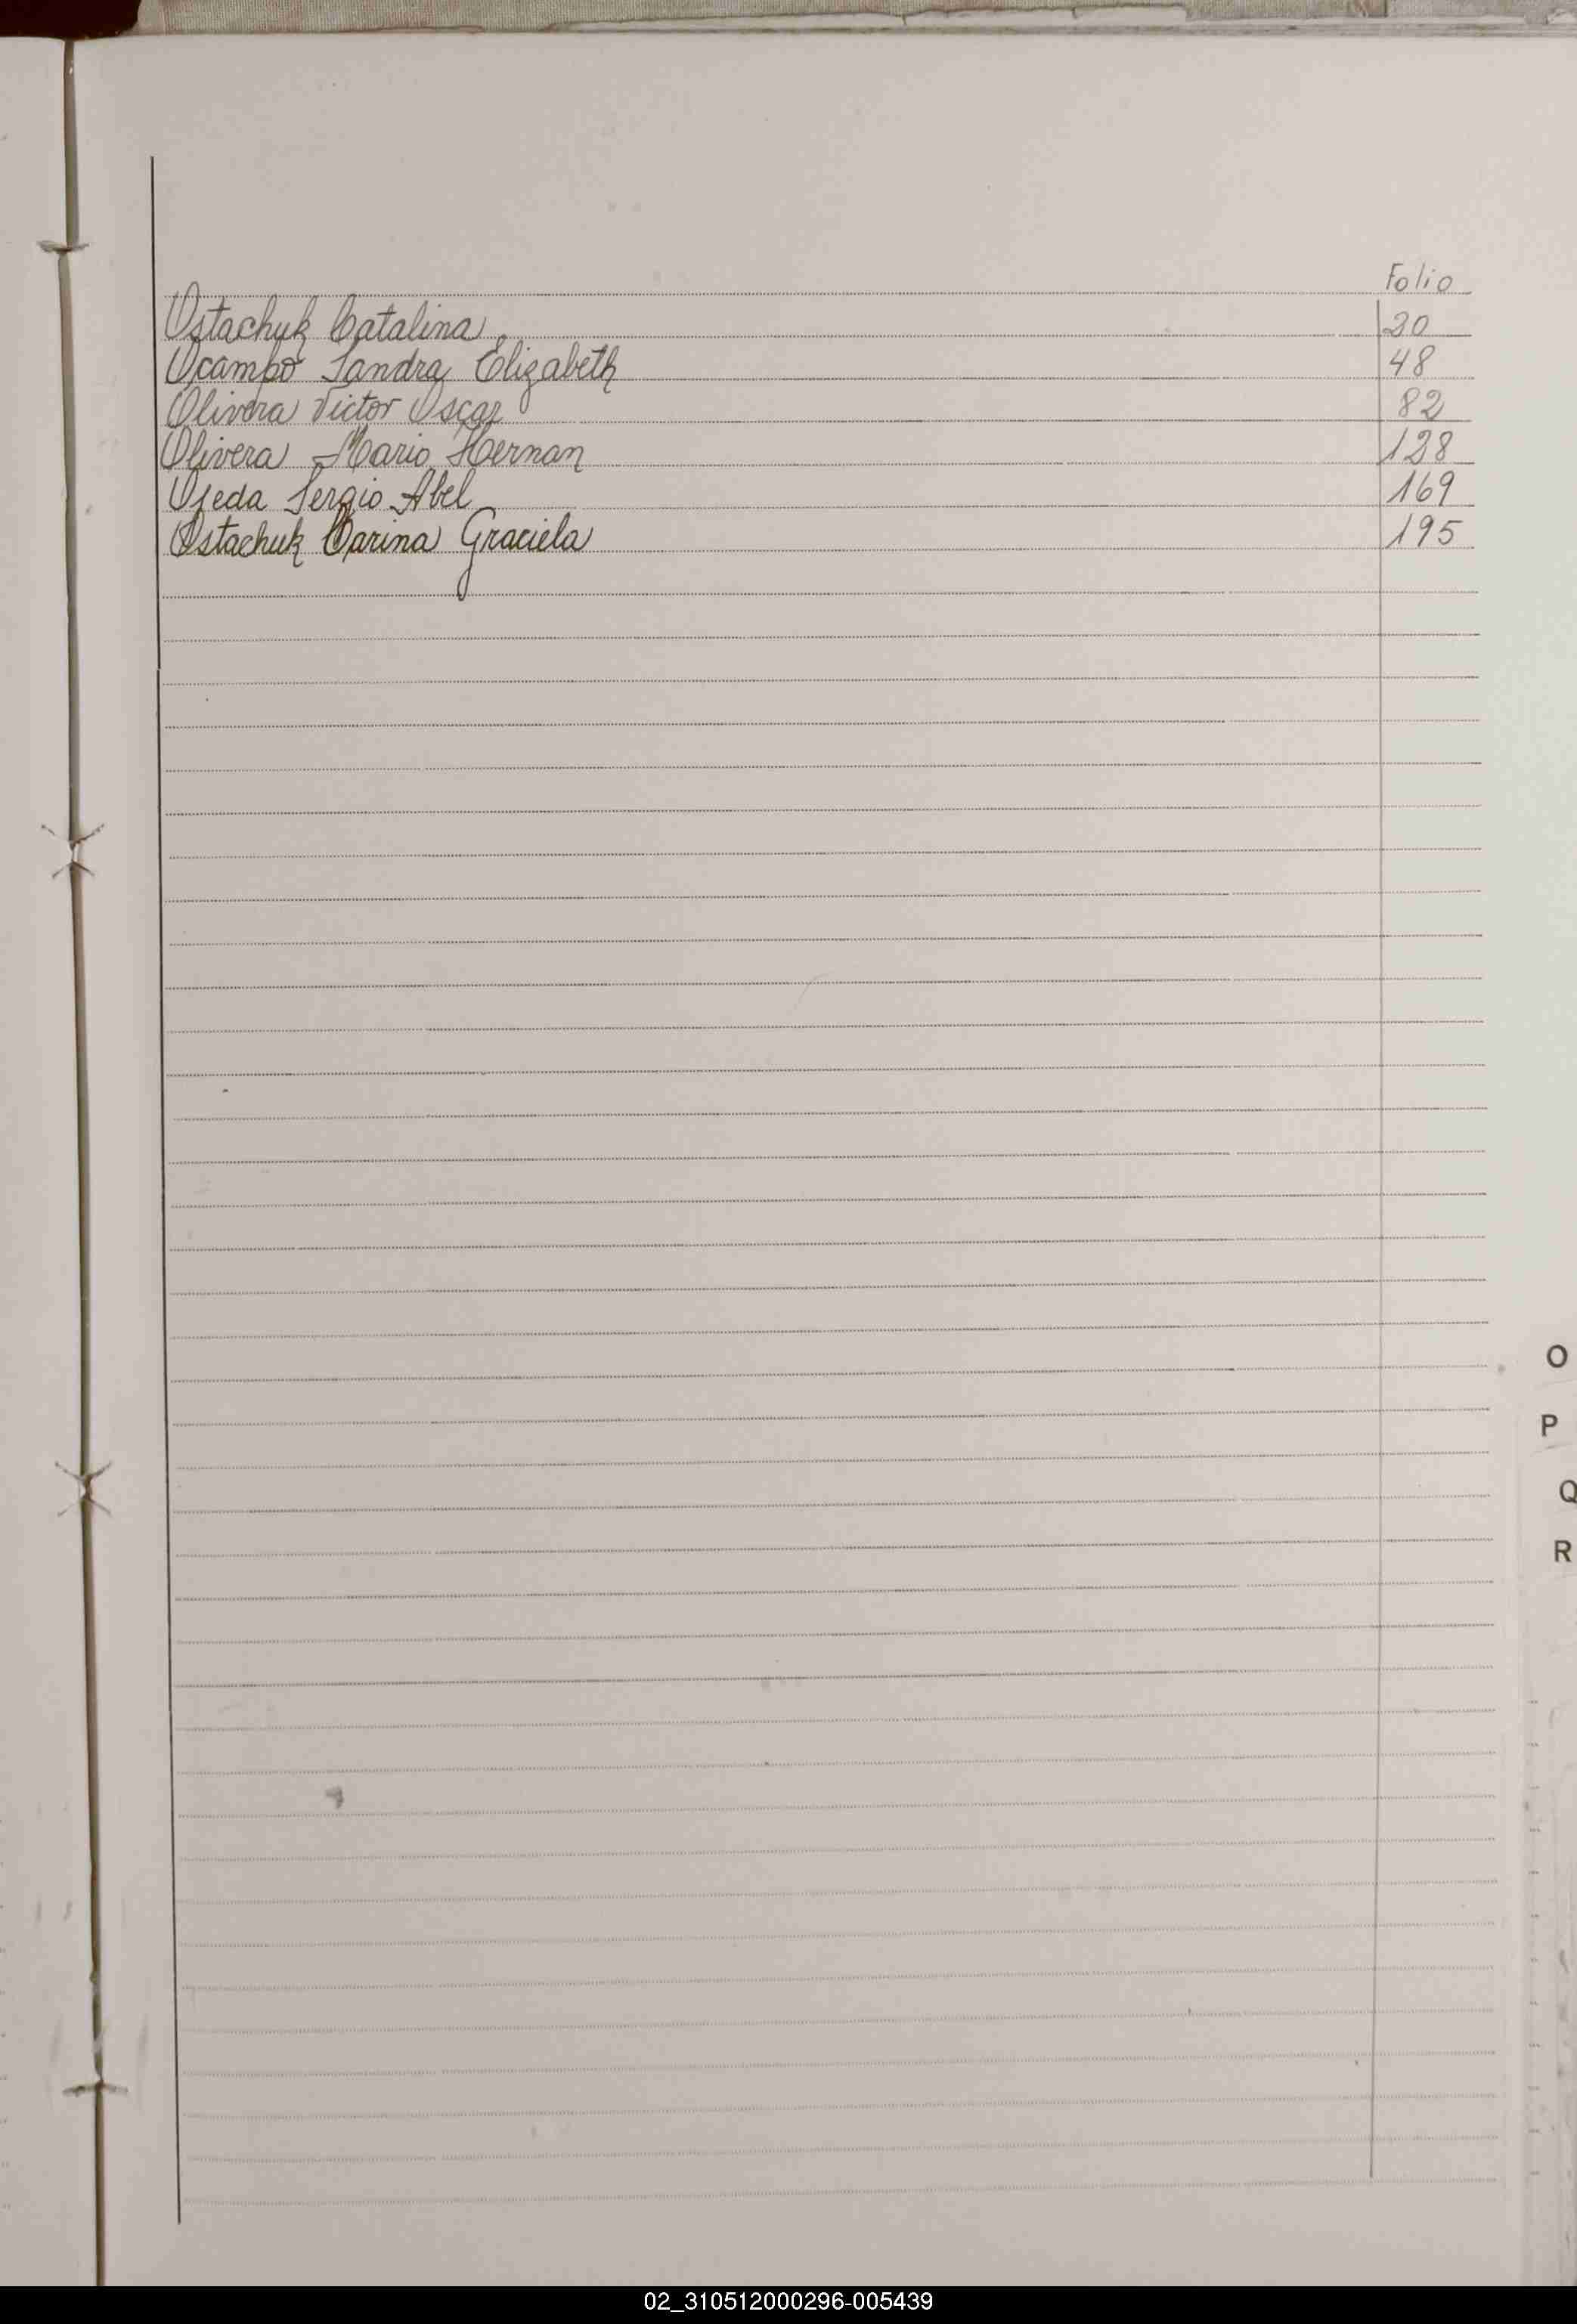 Folio
Ostachuk Catalina 20
Ocampo Sandra Elizabeth 48
Olivera Victor Oscar 82
Olivera Mario Hernan 128
Ojeda Sergio Abel 169
Ostachuk Carina Graciela 195
O
P
Q
R
02_310512000296-005439